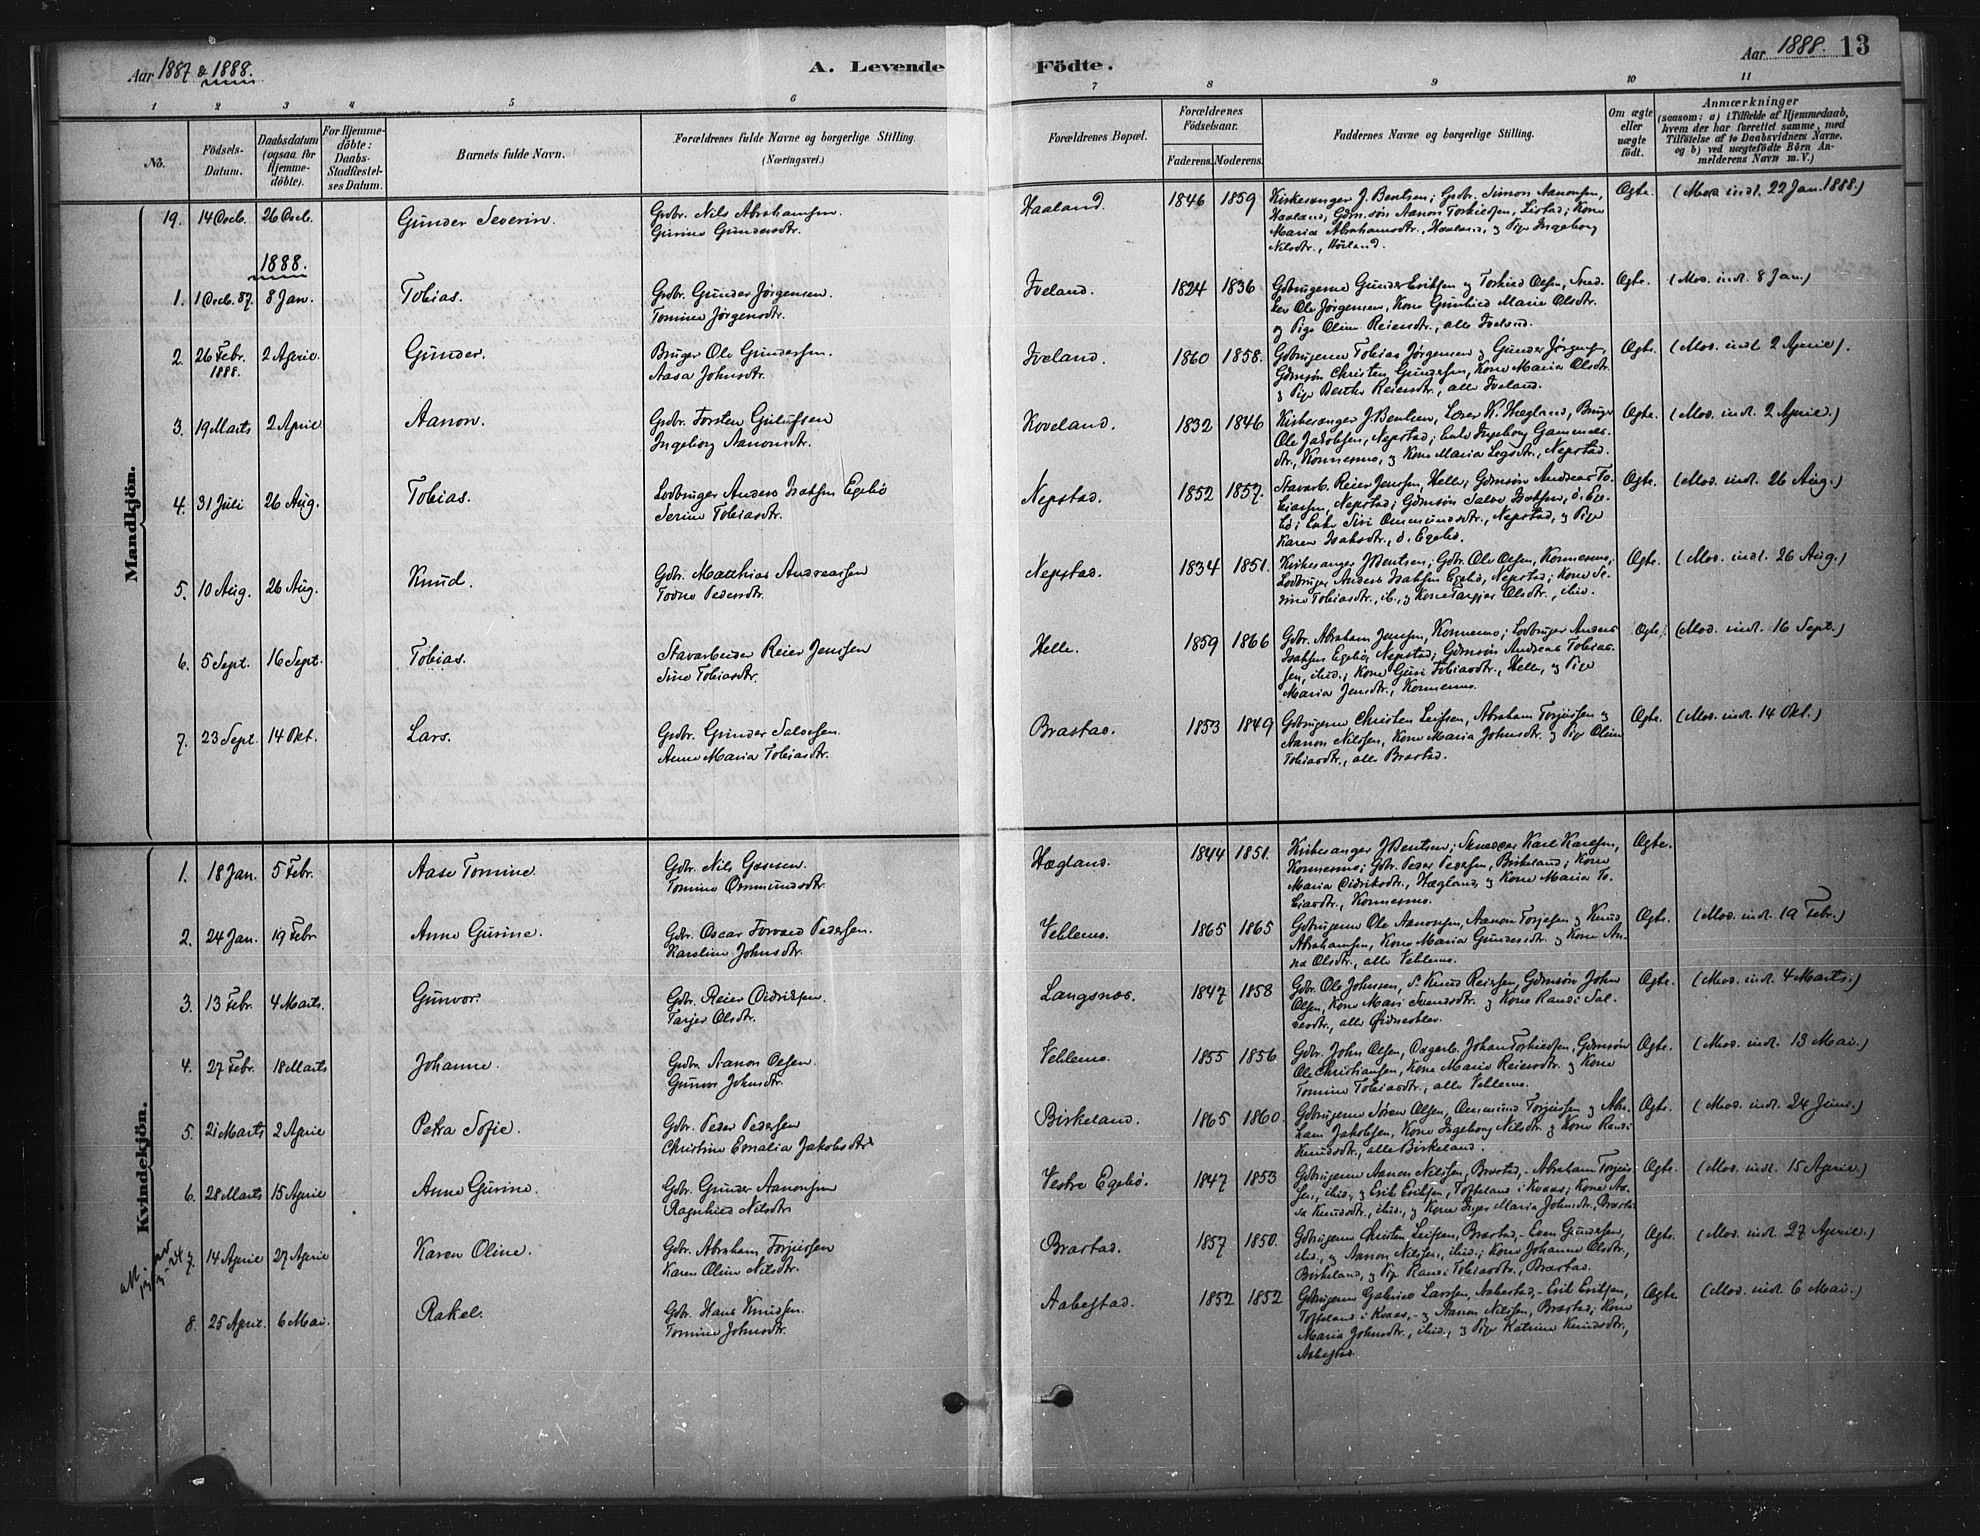 Aar 1887 & 1888.
A. Levende
Födte.
Aar 1888. 13
1 2 3 4 5 6 7 8 9 10 11
No.
Födsels-
Datum.
Daabsdatum
(ogsaa for
Hjemme-
döbte).
For Hjemme-
döbte:
Daabs-
Stadfæstel-
ses Datum.
Barnets fulde Navn.
Forældrenes fulde Navne og borgerlige Stilling.
(Næringsvei.)
Forældrenes Bopæl.
Forældrenes
Födselsaar.
Faderens. Moderens.
Faddernes Navne og borgerlige Stilling.
Om ægte
eller
uægte
födt.
Anmærkninger
(saasom: a) i Tilfælde af Hjemmedaab,
hvem der har forrettet samme, med
Tilföielse af to Daabsvidners Navne,
og b) ved uægtefödte Börn An-
melderens Navn m. V.)
Mandkjön.
19. 14 Decb. 26 Decb. Gunder Severin. Grdbr. Nils Abrahamsen.
Gurine Gundersdtr.
Haaland. 1846 1859 Kirkesanger J. Bentsen; Grdbr. Simon Aanonsen,
Haaland, Gdm.søn Aanon Torkildsen, Listad; Kone
Maria Abrahamsdtr., Haaland, og Pige Ingeborg
Nilsdtr., Høiland.
Ægte. (Mod. indl. 22 Jan. 1888.)
1888.
1. 1 Decb. 87. 8 Jan. Tobias. Grdbr. Gunder Jørgensen.
Tomine Jørgensdtr.
Iveland. 1824 1836 Gdbrugerne Gunder Eriksen og Torkild Olsen, Sned-
ker Ole Jørgensen, Kone Gunhild Marie Olsdtr.
og Pige Oline Reiersdtr., alle Iveland.
Ægte. (Mod. indl. 8 Jan.)
2. 26 Febr.
1888. 2 April. Gunder. Bruger Ole Gundersen.
Aasa Johnsdtr.
Iveland. 1860 1858. Gdbrugerne Tobias Jørgensen og Gunder Jørgensen,
Gdmsøn Christen Gundersen, Kone Maria Olsdtr.
og Pige Berthe Reiersdtr., alle Iveland.
Ægte. (Mod. indl. 2 April).
3. 19 Marts 2 April Aanon. Grdbr. Torsten Gjulufsen
Ingeborg Aanonsdtr.
Koveland. 1832 1846 Kirkesanger J. Bentsen, Lærer K. Hægland, Bruger
Ole Jakobsen, Nepstad; Enke Ingeborg Gammels-
dtr., Konnesmo, og Kone Maria Legsdtr., Nepstad.
Ægte. (Mod. indl. 2 April.)
4. 31 Juli 26 Aug. Tobias. Lodbruger Anders Isaksen Egebø
Serine Tobiasdtr.
Nepstad. 1852 1857. Stavarb. Reier Jensen, Helle; Gdmsøn Andreas To-
biassen, Nepstad; Gdmsøn Salve Isaksen, ø. Ege-
bø; Enke Siri Ommundsdtr., Nepstad, og Pige
Karen Isaksdtr., ø. Egebø.
Ægte. (Mod. indl. 26 Aug.)
5. 10 Aug. 26 Aug. Knud. Gdbr. Matthias Andreassen
Todne Pedersdtr.
Nepstad. 1834 1851. Kirkesanger J Bentsen; Gdbr. Ole Olsen, Konnesmo;
Lodbruger Anders Isaksen Egebø, Nepstad; Kone Se-
rine Tobiasdtr., ib., og Kone Targjer Olsdtr., ibid.
Ægte. (Mod. indl. 26 Aug.)
6. 5 Sept. 16 Sept. Tobias. Stavarbeider Reier Jensen
Sine Tobiasdtr.
Helle. 1859 1866 Gdbr. Abraham Jensen, Konnesmo; Lodbruger Anders
Isaksen Egebø, Nepstad; Gdmsøn Andreas Tobias-
sen, ibid.; Kone Guri Tobiasdtr., Helle, og Pige
Maria Jensdtr., Konnesmo.
Ægte. (Mod. indl. 16 Sept.)
7. 23 Sept. 14 Okt. Lars. Grdbr. Gunder Salvesen.
Anne Maria Tobiasdtr.
Brastad. 1853 1849 Gdbrugerne Christen Leifsen, Abraham Torjussen og
Aanon Nilssen, Kone Maria Johnsdtr. og Pige Oline
Tobiasdtr., alle Brastad.
Ægte. (Mod. indl. 14 Okt.)
Kvindekjön.
1. 18 Jan. 5 Febr. Aase Tomine. Gdbr. Nils Gossen.
Tomine Ommundsdtr.
Hægland. 1844 1851. Kirkesanger J Bentsen; Skredder Karl Karlsen,
Konnesmo; Gdbr. Peder Pedersen, Birkeland; Kone
Maria Didriksdtr., Hægland, og Kone Maria To-
biasdtr., Konnesmo.
Ægte.
2. 24 Jan. 19 Febr. Anne Gurine. Gdbr. Oscar Torvald Pedersen.
Karoline Johnsdtr.
Veblemo. 1865 1865 Gdbrugerne Ole Aanonsen, Aanon Torjesen og Knud
Abrahamsen, Kone Maria Gundersdtr. og Kone An-
na Olsdtr., alle Veblemo.
Ægte. (Mod. indl. 19 Febr.)
3. 13 Febr. 4 Marts. Gunvor. Gdbr. Reier Didriksen.
Tarjer Olsdtr.
Langsnæs. 1847 1858 Gdbr. Ole Johnsen, do Knud Reiersen, Gdmsøn John
Olsen, Kone Mari Svensdtr. og Kone Randi Sal-
vesdtr., alle Øidnesblev.
Ægte. (Mod. indl. 4 Marts.)
4. 27 Febr. 18 Marts Johanne. Grdbr. Aanon Olsen.
Gunvor Johnsdtr.
Veblemo. 1855 1856 Gdbr. John Olsen, Dagarb. Johan Torkildsen, Gdmsøn
Ole Christiansen, Kone Maria Reiersdtr. og Kone
Tomine Tobiasdtr., alle Veblemo.
Ægte. (Mod. indl. 13 Mai.)
5. 21 Marts 2 April Petra Sofie. Gdbr. Peder Pedersen
Christine Cornalia Jakobsdtr.
Birkeland. 1865 1860. Gdbrugerne Søren Olsen, Ommund Torjussen og Abra-
ham Jakobsen, Kone Ingeborg Nilsdtr. og Kone Randi
Knudsdtr., alle Birkeland.
Ægte. (Mod. indl. 24 Juni.)
6. 28 Marts 15 April Anne Gurine. Gdbr. Gunder Aanonsen
Ragnhild Nilsdtr.
Vestre Egebø. 1847 1853 Gdbrugerne Aanon Nilssen, Brastad, Abraham Torjus-
sen, ibid., og Erik Eriksen, Tofteland i Kvaas; Kone Aa-
sa Knudsdtr., ibid., og Kone Inger Maria Johnsdtr., Brastad
Ægte. (Mod. indl. 15 April.)
7. 14 April 27 April Karen Oline. Gdbr. Abraham Torjussen
Karen Oline Nilsdtr.
Brastad. 1857 1850. Gdbrugerne Christen Leifsen, Brastad, Even Gundersen,
ibid., og Aanon Nilssen, ibid.; Kone Johanne Olsdtr.,
Birkeland, og Pige Randi Tobiasdtr., Brastad.
Ægte. (Mod. indl. 27 April.)
8. 25 April. 6 Mai. Rakel. Gdbr. Hans Knudsen.
Tomine Johnsdtr.
Aabestad. 1852 1852 Gdbrugerne Gabriel Larssen, Aabestad, Erik Eriksen,
Tofteland i Kvaas, og Aanon Nilssen, Brastad; Kone
Maria Johnsdtr., ibid., og Pige Katrine Knudsdtr.,
Aabestad.
Ægte. (Mod. indl. 6 Mai.)